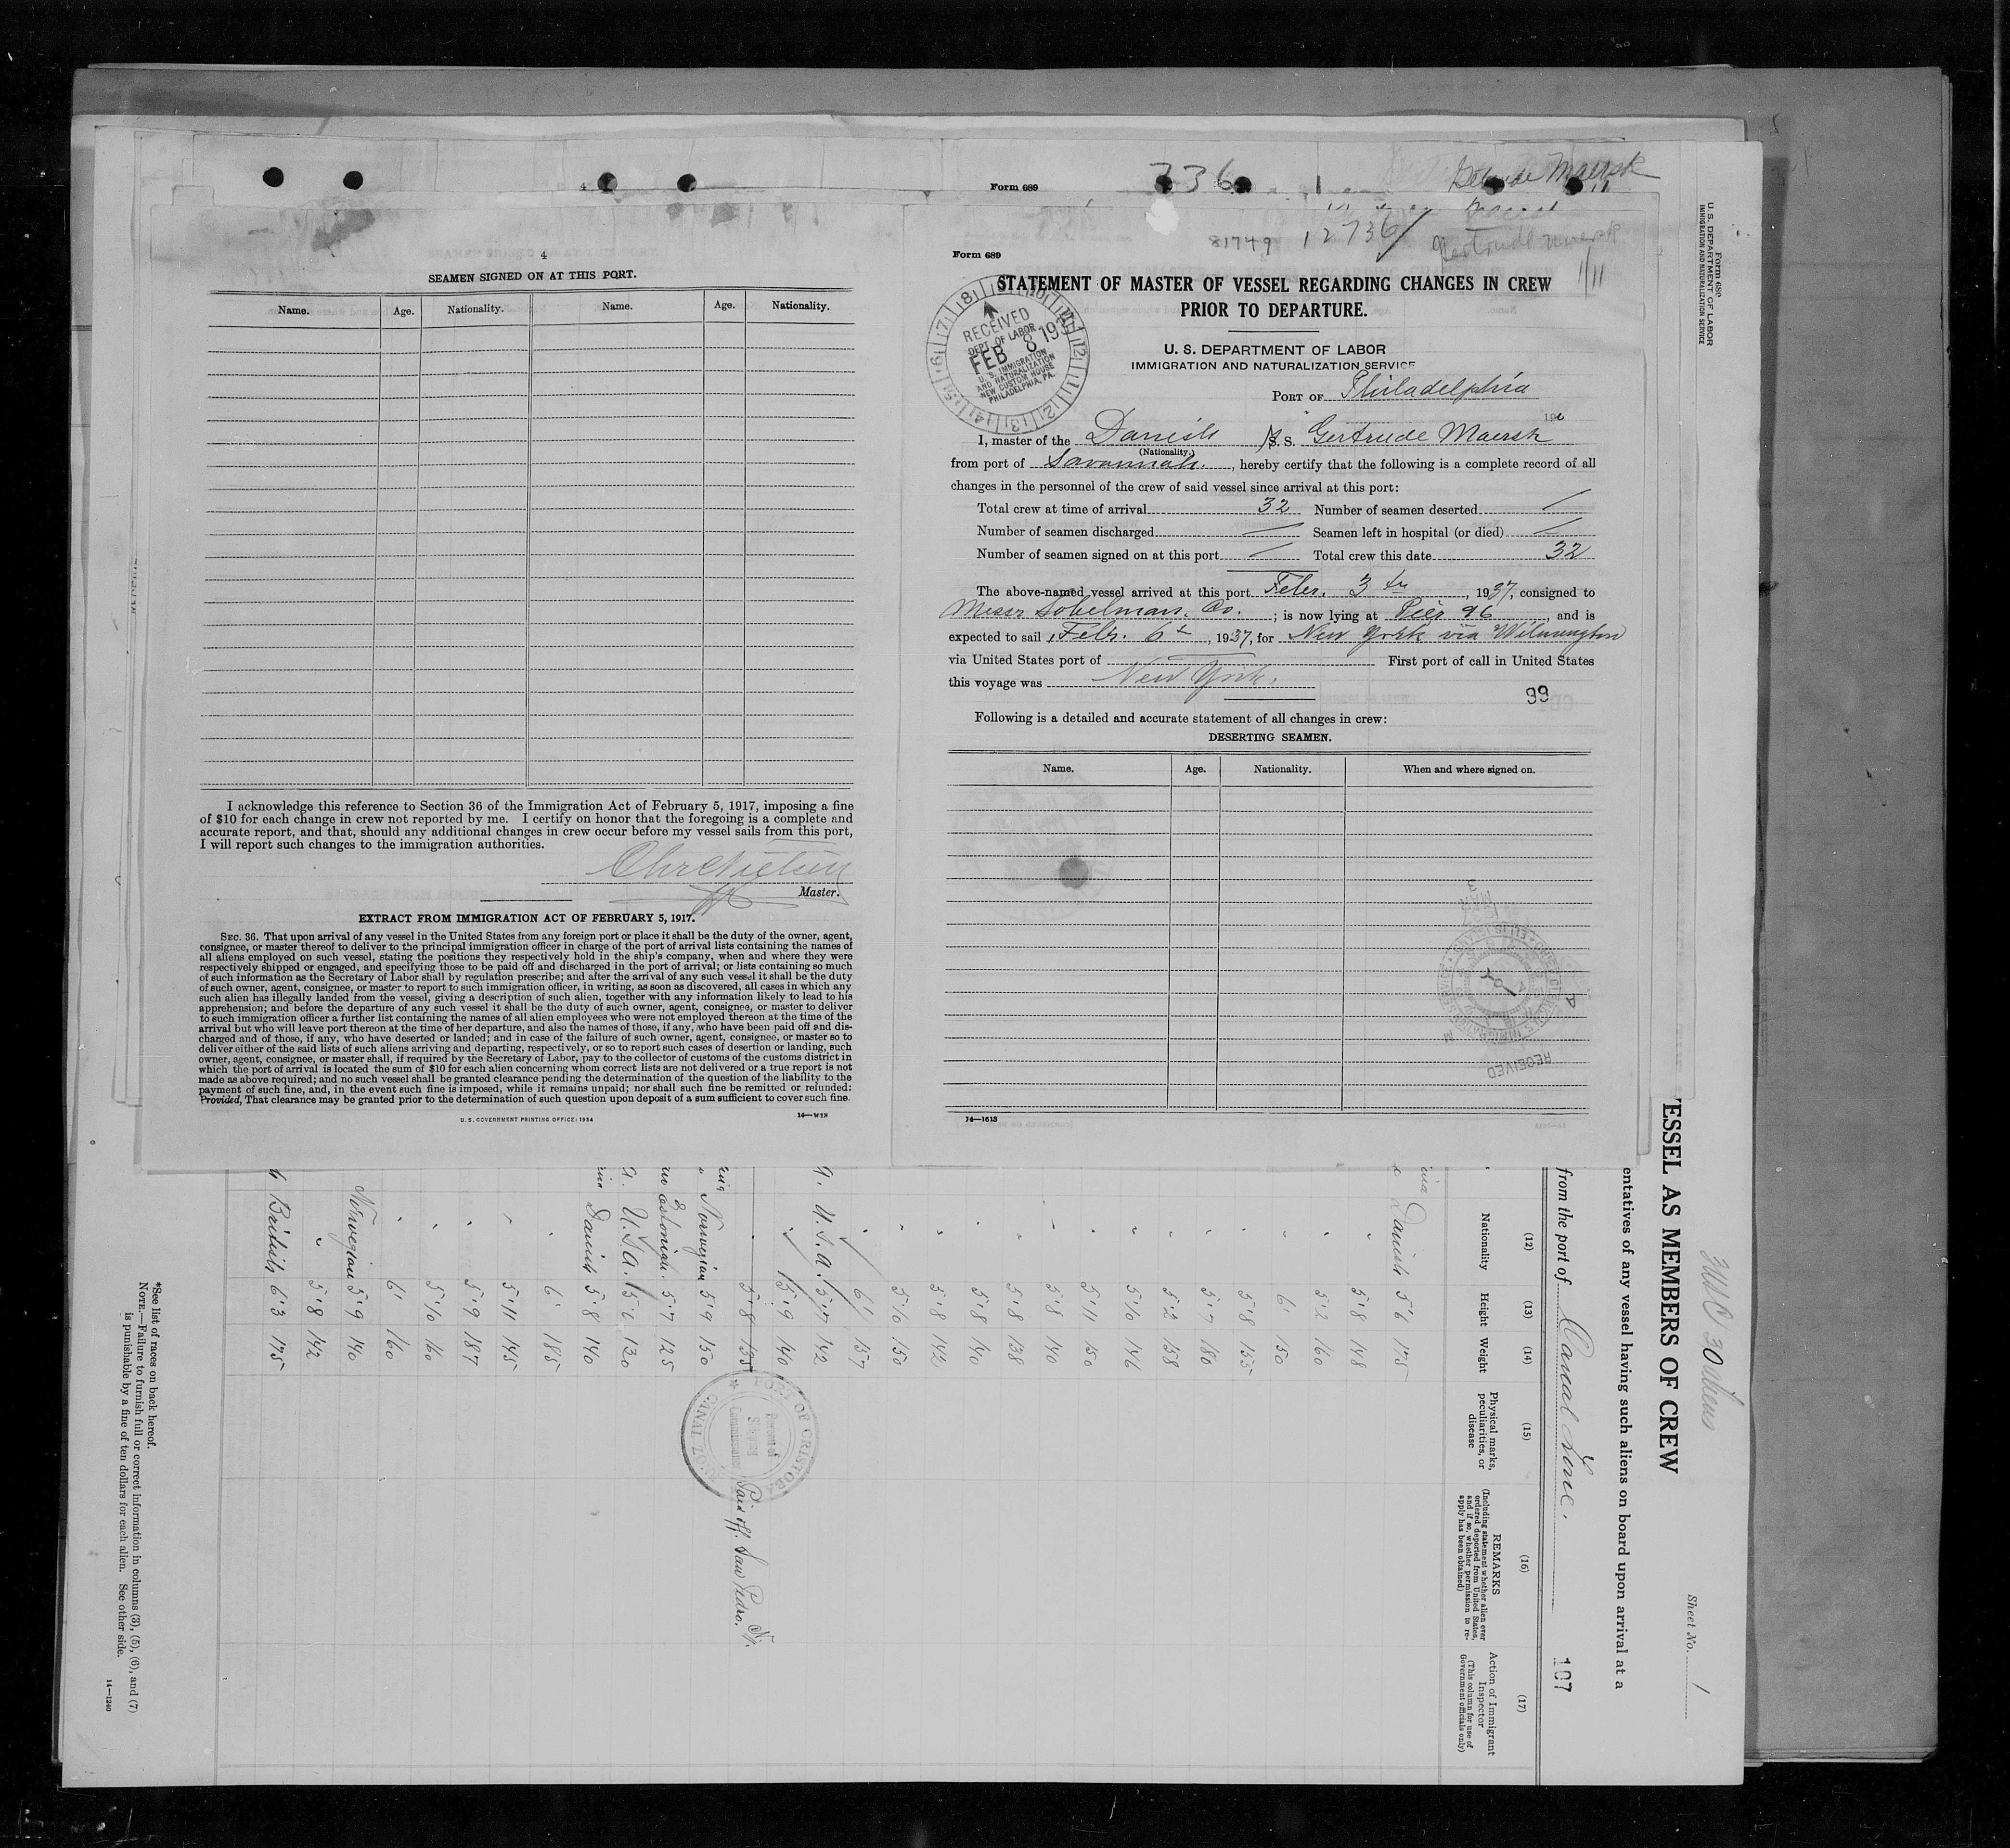 4
SEAMEN SIGNED ON AT THIS PORT.
Name. Age. Nationality. Name. Age. Nationality.
I acknowledge this reference to Section 36 of the Immigration Act of February 5, 1917, imposing a fine
of $10 for each change in crew not reported by me. I certify on honor that the foregoing is a complete and
accurate report, and that, should any additional changes in crew occur before my vessel sails from this port,
I will report such changes to the immigration authorities.
Master.
EXTRACT FROM IMMIGRATION ACT OF FEBRUARY 5, 1917.
SEC. 36. That upon arrival of any vessel in the United States from any foreign port or place it shall be the duty of the owner, agent,
consignee, or master thereof to deliver to the principal immigration officer in charge of the port of arrival lists containing the names of
all aliens employed on such vessel, stating the positions they respectively hold in the ship's company, when and where they were
respectively shipped or engaged, and specifying those to be paid off and discharged in the port of arrival; or lists containing so much
of such information as the Secretary of Labor shall by regulation prescribe; and after the arrival of any such vessel it shall be the duty
of such owner, agent, consignee, or master to report to such immigration officer, in writing, as soon as discovered, all cases in which any
such alien has illegally landed from the vessel, giving a description of such alien, together with any information likely to lead to his
apprehension; and before the departure of any such vessel it shall be the duty of such owner, agent, consignee, or master to deliver
to such immigration officer a further list containing the names of all alien employees who were not employed thereon at the time of the
arrival but who will leave port thereon at the time of her departure, and also the names of those, if any, who have been paid off and dis-
charged and of those, if any, who have deserted or landed; and in case of the failure of such owner, agent, consignee, or master so to
deliver either of the said lists of such aliens arriving and departing, respectively, or so to report such cases of desertion or landing, such
owner, agent, consignee, or master shall, if required by the Secretary of Labor, pay to the collector of customs of the customs district in
which the port of arrival is located the sum of $10 for each alien concerning whom correct lists are not delivered or a true report is not
made as above required; and no such vessel shall be granted clearance pending the determination of the question of the liability to the
payment of such fine, and, in the event such fine is imposed, while it remains unpaid; nor shall such fine be remitted or refunded:
Provided, That clearance may be granted prior to the determination of such question upon deposit of a sum sufficient to cover such fine.
U. S. GOVERNMENT PRINTING OFFICE: 1934
Form 689
Maersk
81749 12736
Gertrude Maersk
11/11
Form 689
STATEMENT OF MASTER OF VESSEL REGARDING CHANGES IN CREW
PRIOR TO DEPARTURE.
RECEIVED
DEPT. OF LABOR
FEB 8 1937
U. S. IMMIGRATION
AND NATURALIZATION
NEW CUSTOM HOUSE
PHILADELPHIA, PA.
U. S. DEPARTMENT OF LABOR
IMMIGRATION AND NATURALIZATION SERVICE
PORT OF Philadelphia
I, master of the Danish S. S. Gertrude Maersk
(Nationality.)
from port of Savannah., hereby certify that the following is a complete record of all
changes in the personnel of the crew of said vessel since arrival at this port:
Total crew at time of arrival 32 Number of seamen deserted /
Number of seamen discharged / Seamen left in hospital (or died) /
Number of seamen signed on at this port / Total crew this date 32
The above-named vessel arrived at this port Febr. 3, 1937, consigned to
Messr Sobelman. Co.; is now lying at Pier 96, and is
expected to sail, Febr. 6, 1937, for New York via Wilmington
via United States port of First port of call in United States
this voyage was New York.
99
Following is a detailed and accurate statement of all changes in crew:
DESERTING SEAMEN.
Name. Age. Nationality. When and where signed on.
RECEIVED
14—1613
Form 680
U. S. DEPARTMENT OF LABOR
IMMIGRATION AND NATURALIZATION SERVICE
Sheet No. 1
ESSEL AS MEMBERS OF CREW
entatives of any vessel having such aliens on board upon arrival at a
from the port of Canal Zone. 107
(12) (13) (14) (15) (16) (17)
Nationality Height Weight Physical marks, peculiarities, or disease
REMARKS
(Including statement whether alien ever ordered deported from United States, and if so, whether permission to re-apply has been obtained)
Action of Immigrant Inspector
(This column for use of Government officials only)
Danish 5'6 175
" 5'8 148
" 5'2 160
" 6' 150
" 5'8 155
" 5'7 180
" 5'2 138
" 5'10 146
" 5'11 150
" 5'8 140
" 5'8 138
" 5'8 140
" 5'8 142
" 5'10 150
" 6'1 157
U.S.A. 5'7 142
" 5'9 140
" 5'8 135
PORT OF CRISTOBAL
CANAL ZONE
Shipping
Commissioner
Paid off. San Pedro.
Norwegian 5'9 150
Estonian. 5'7 125
U.S.A. 5'6 130
Danish 5'8 140
" 6' 185
" 5'11 145
" 5'9 187
" 5'10 160
" 6' 160
Norwegian 5'9 140
" 5'8 142
British 6'3 175
*See list of races on back hereof.
NOTE.—Failure to furnish full or correct information in columns (3), (5), (6), and (7)
is punishable by a fine of ten dollars for each alien. See other side.
14—1240